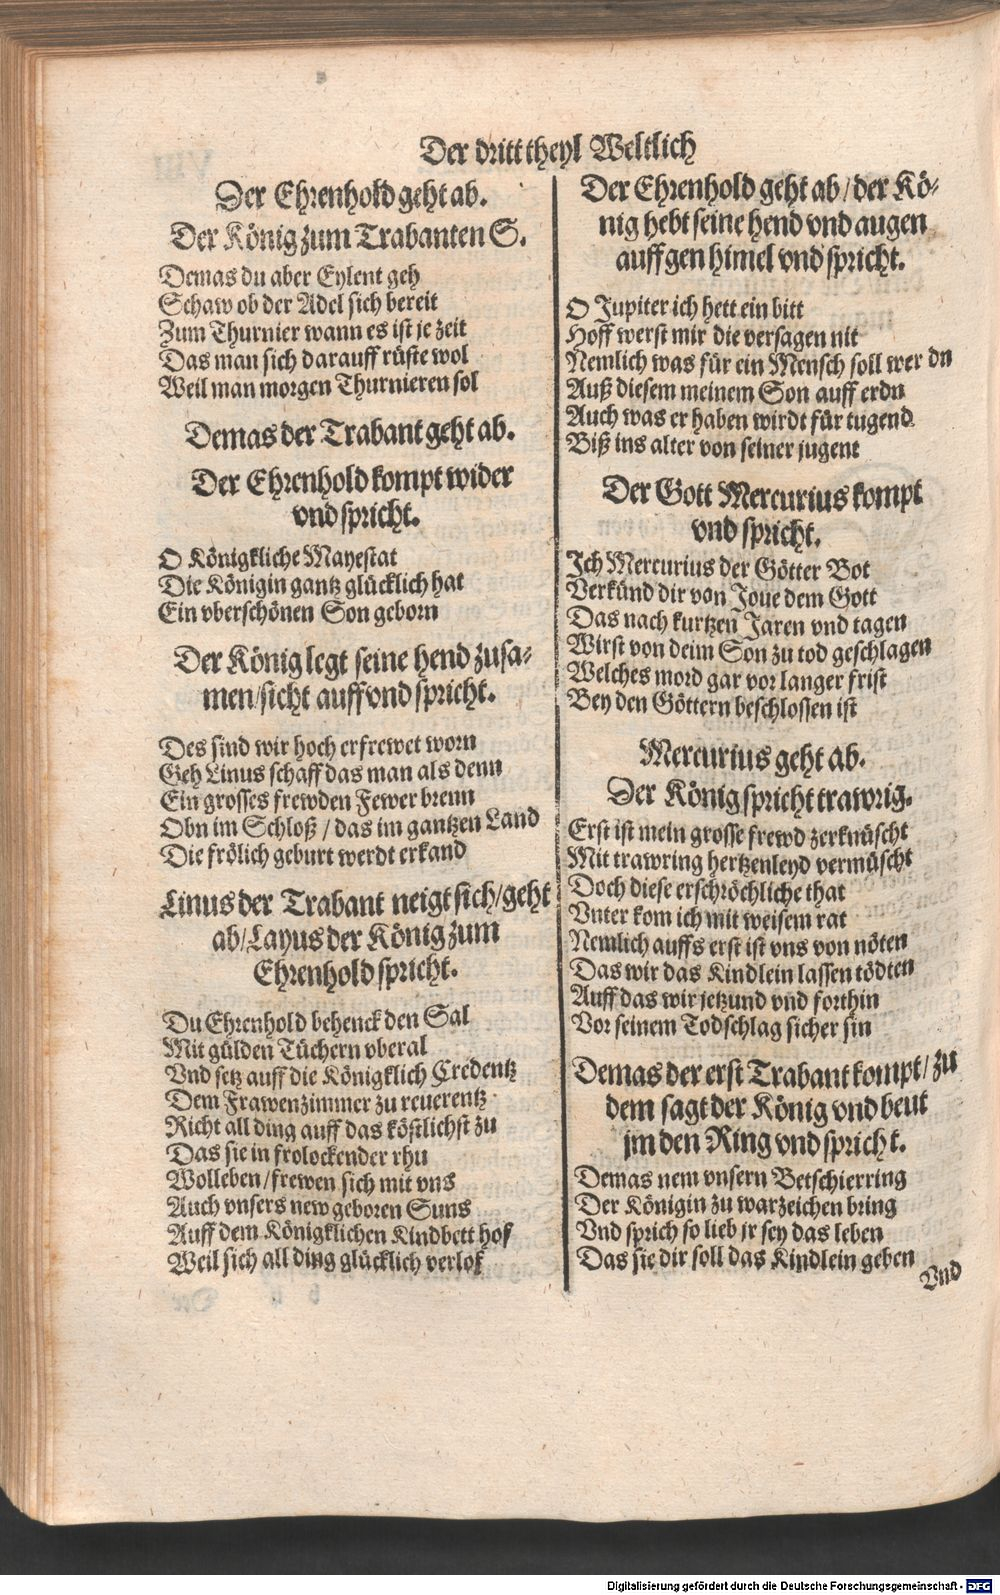 Der dritt theyl Weltlich
Der Ehrenhold geht ab.
Der König zum Trabanten S.
Demas du aber Eylent geh
Schaw ob der Adel sich bereit
Zum Thurnier wann es ist je zeit
Das man sich darauff rüste wol
Weil man morgen Thurnieren sol
Demas der Trabant geht ab.
Der Ehrenhold kompt wider
vnd spricht.
O Königkliche Mayestat
Die Königin gantz glücklich hat
Ein vberschönen Son geborn
Der König legt seine hend zusa-
men/sicht auff vnd spricht.
Des sind wir hoch erfrewet worn
Geh Linus schaff das man als denn
Ein grosses frewden Fewer brenn
Obn im Schloß / das im gantzen Land
Die frölich geburt werdt erkand
Linus der Trabant neigt sich/geht
ab/Layus der König zum
Ehrenhold spricht.
Du Ehrenhold behenck den Sal
Mit gülden Tüchern vberal
Vnd setz auff die Königklich Credentz
Dem Frawenzimmer zu reuerentz
Richt all ding auff das köstlichst zu
Das sie in frolockender rhu
Wolleben/frewen sich mit vns
Auch vnsers new geboren Suns
Auff dem Königklichen Kindbett hof
Weil sich all ding glücklich verlof
Der Ehrenhold geht ab/der Kö-
nig hebt seine hend vnd augen
auff gen himel vnd spricht.
O Jupiter ich hett ein bitt
Hoff werst mir die versagen nit
Nemlich was für ein Mensch soll werdn
Auß diesem meinem Son auff erdn
Auch was er haben wirdt für tugend
Biß ins alter von seiner jugent
Der Gott Mercurius kompt
vnd spricht.
Ich Mercurius der Götter Bot
Verkünd dir von Joue dem Gott
Das nach kurtzen Jaren vnd tagen
Wirst von deim Son zu tod geschlagen
Welches mord gar vor langer frist
Bey den Göttern beschlossen ist
Mercurius geht ab.
Der König spricht trawrig.
Erst ist mein grosse frewd zerknüscht
Mit trawring hertzenleyd vermüscht
Doch diese erschröchliche that
Vnter kom ich mit weisem rat
Nemlich auffs erst ist vns von nöten
Das wir das Kindlein lassen tödten
Auff das wir jetzund vnd forthin
Vor seinem Todschlag sicher sin
Demas der erst Trabant kompt/zu
dem sagt der König vnd beut
jm den Ring vnd spricht.
Demas nem vnsern Betschierring
Der Königin zu warzeichen bring
Vnd sprich so lieb jr sey das leben
Das sie dir soll das Kindlein geben
Vnd
Digitalisierung gefördert durch die Deutsche Forschungsgemeinschaft - DFG